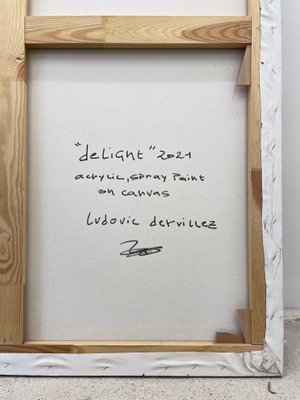 "delight" 2021
acrylic, spray paint
on canvas
Ludovic dervillez